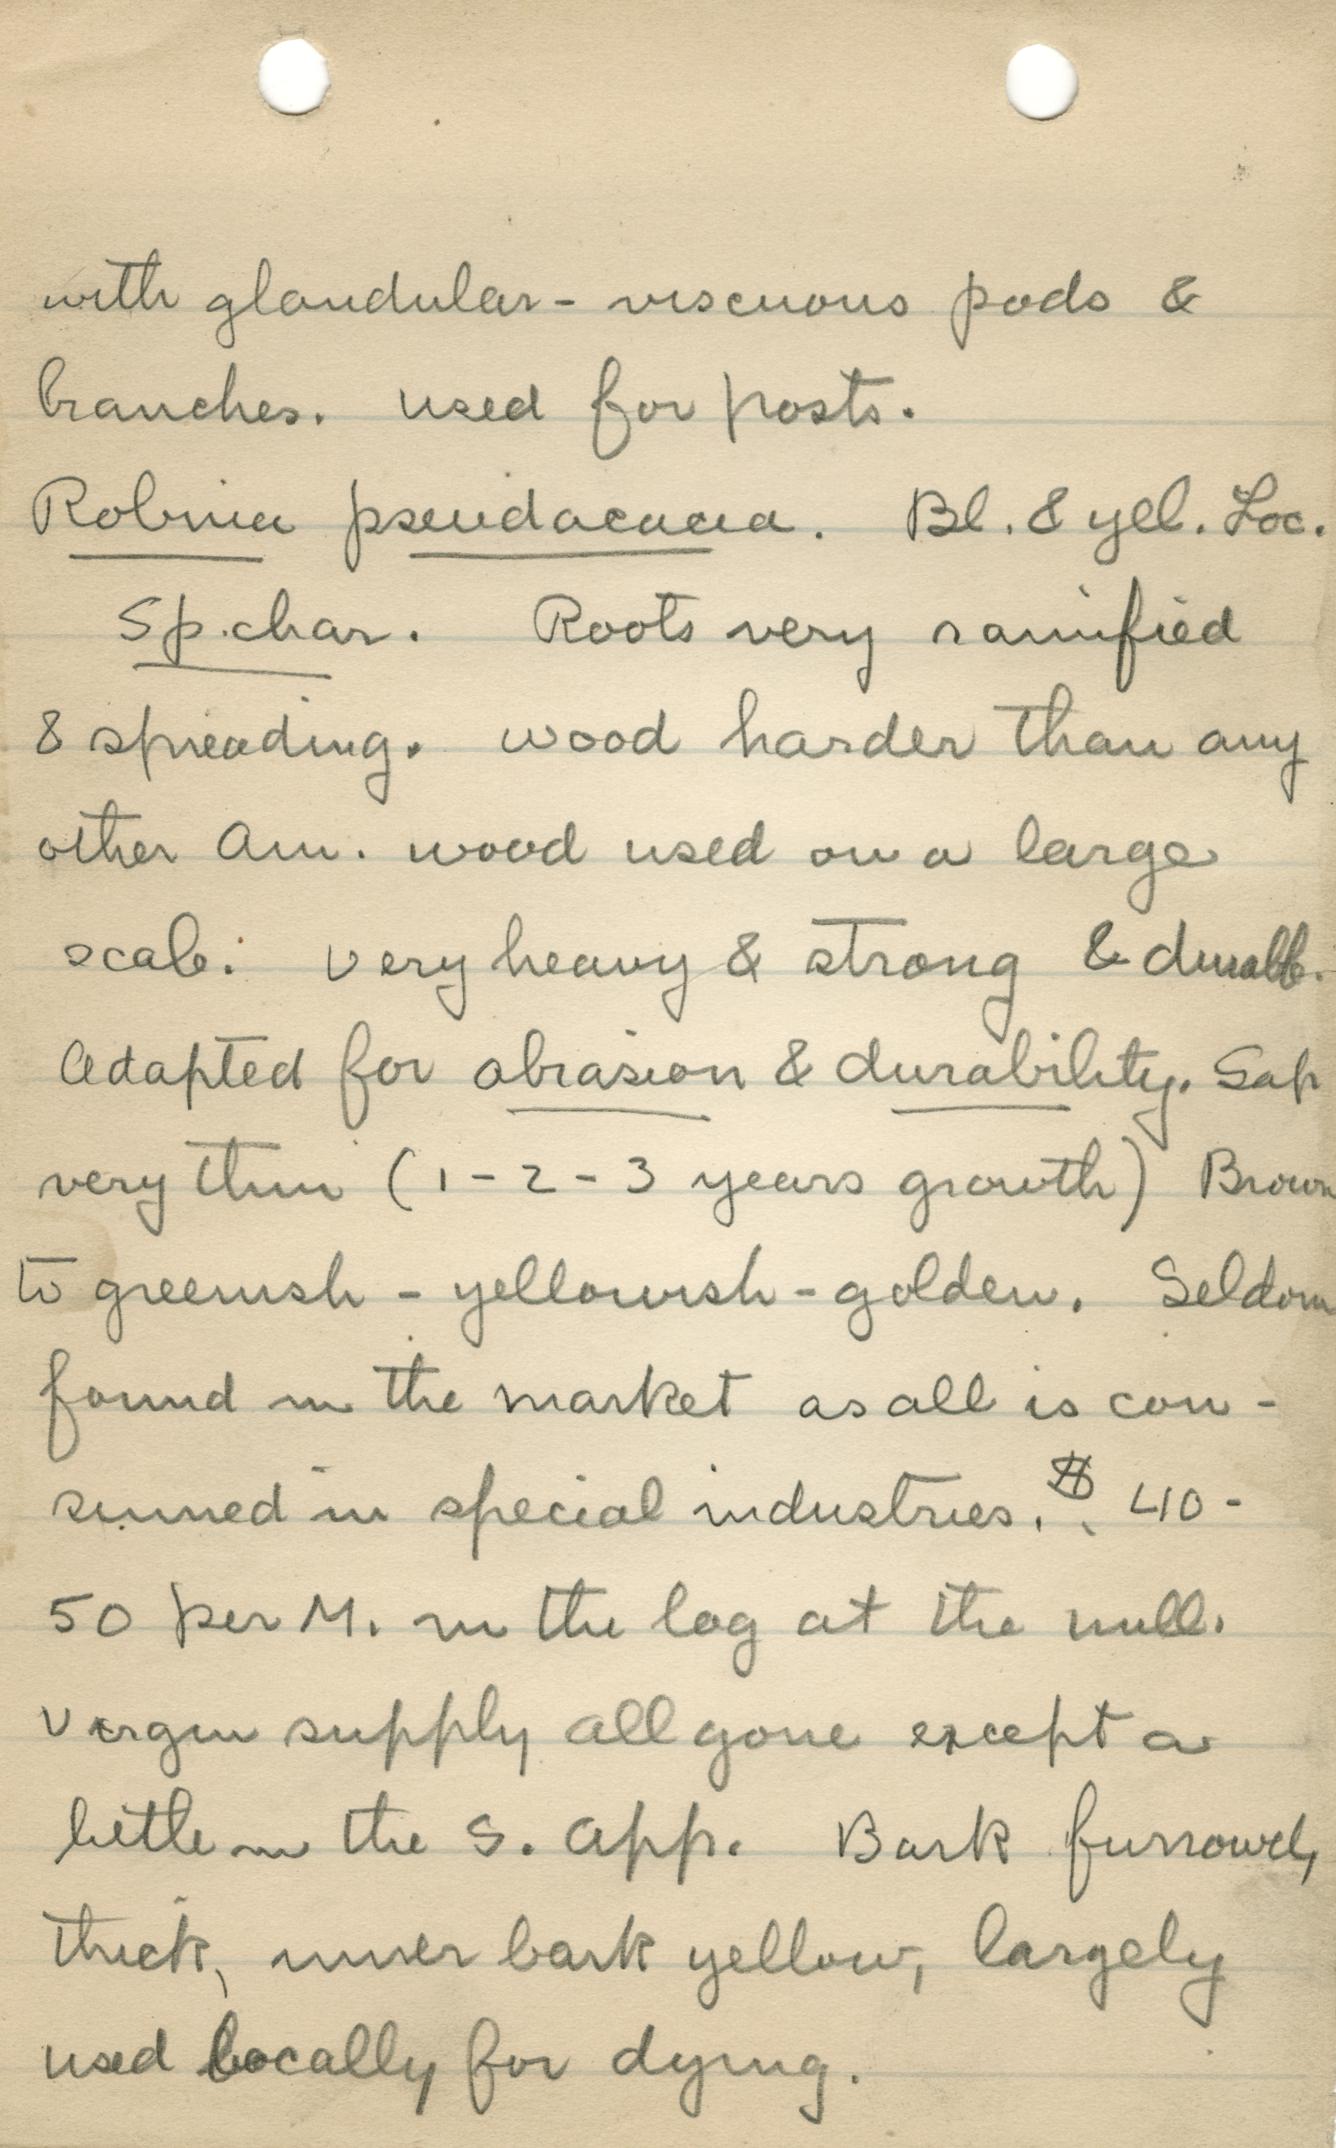 with glandular-viscuous pods &
branches. used for posts.
Robinia pseudacacia. Bl. & yel. Loc.
Sp. char. Roots very ramified
& spreading. wood harder than any
other Am. wood used on a large
scale. very heavy & strong & durable.
Adapted for abrasion & durability. Sap
very thin (1-2-3 years growth) Brown
to greenish - yellowish - golden. Seldom
found in the market as all is con-
sumed in special industries. $ 40-
50 per M. in the log at the mill.
Virgin supply all gone except a
little in the S. App. Bark furrowed,
thick, inner bark yellow, largely
used locally for dying.